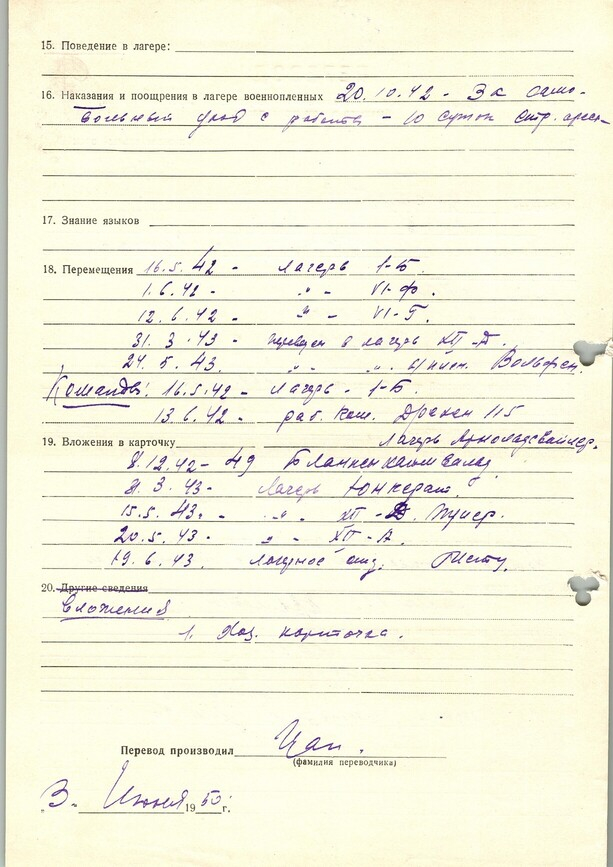 15. Поведение в лагере:
16. Наказания и поощрения в лагере военнопленных 20.10.42 - За само-
вольный уход с работы - 10 суток стр. арест
17. Знание языков
18. Перемещения 16.5.42 - лагерь 1-Б.
1.6.42 - " - VI-ф.
12.6.42 - " - VI-Г.
31.3.43 - переведен в лагерь XII-А.
24.5.43. " " " Вольфен.
Команды: 16.5.42 - лагерь - 1-Б.
13.6.42 - раб. ком. Дрехен 115
19. Вложения в карточку лагерь Арнольдсвайлер.
8.12.42 - 49
31.3.43 - лагерь Юнкерат.
15.5.43. - " - XII-Д.
20.5.43 - " - XII-А.
19.6.43. лагерное
20. Другие сведения
Вложения
1. Хоз. карточка.
Перевод производил
(фамилия переводчика)
"3" Июня 1950 г.